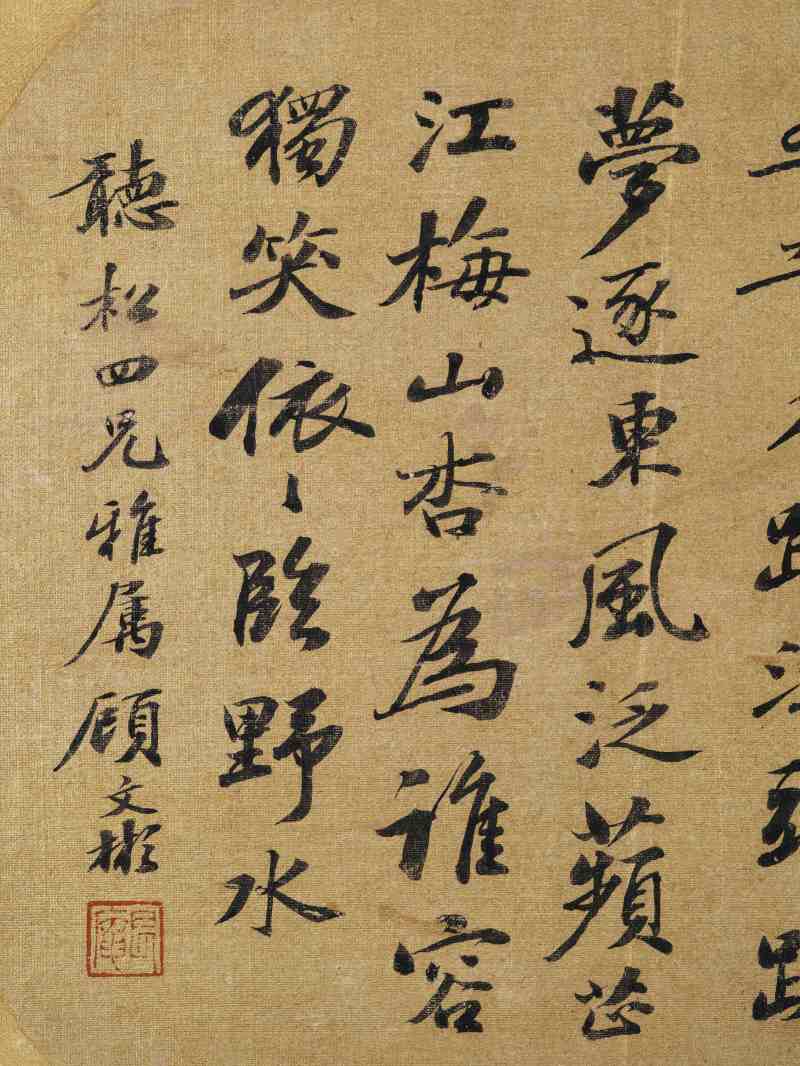 夢逐東風泛蘋芷
江梅山杏為誰容
獨笑依〻臨野水
聽松四兄雅属顧文彬